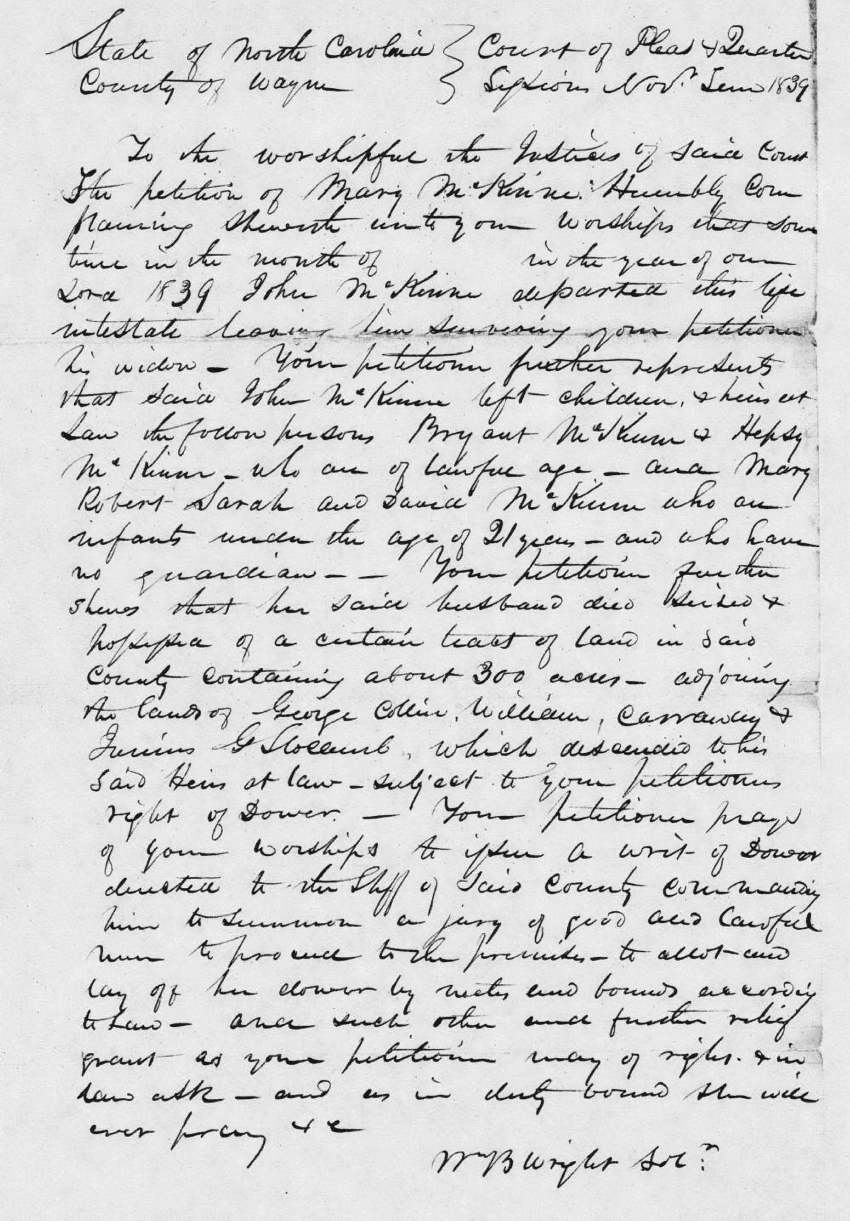 State of North Carolina } Court of Pleas & Quarter
County of Wayne } Sessions Nov.r Term 1839
To the worshipful the Justices of said Court
The petition of Mary McKinne. Humbly Com
plaining sheweth unto your Worships that some
time in the month of in the year of our
Lord 1839 John McKinne departed this life
intestate leaving him surviving your petitioner
his widow – Your petitioner further represents
that said John McKinne left children, & heirs at
Law the follow persons Bryant McKinne & Hepsy
McKinne – who are of lawful age – and Mary
Robert Sarah and David McKinne who are
infants under the age of 21 years – and who have
no guardian – – Your petitioner further
shews that her said husband died seized &
possessed of a certain tract of land in said
County containing about 300 acres – adjoining
the lands of George Collin, William, Carraway &
Junius G Slocumb, which descended to his
said Heirs at law – subject to your petitioners
right of Dower. – Your petitioner prays
of your worships to issue a writ of Dower
directed to the Shff of said County commanding
him to summon a jury of good and lawful
men to proceed to the premises – to allot and
lay off her dower by metes and bounds according
to Law – and such other and further relief
grant as your petitioner may of right. & in
law ask – and as in duty bound she will
ever pray &c
Wm B Wright Solr.